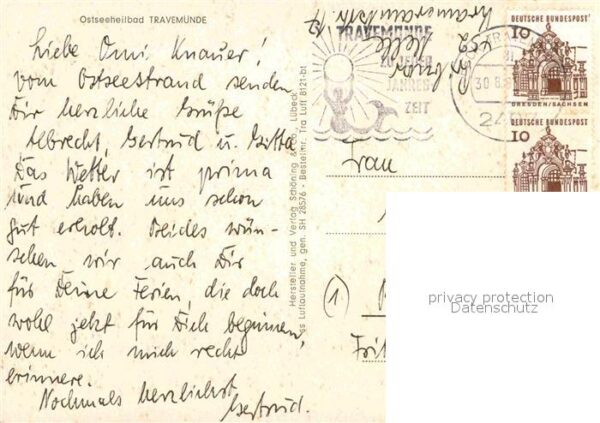 Ostseeheilbad TRAVEMÜNDE
Liebe Omi Knauer!
vom Ostseestrand senden
Dir herzliche Grüße
Albrecht, Gertrud u. Gitta
Das Wetter ist prima
und haben uns schon
gut erholt. Beides wün-
schen wir auch Dir
für Deine Ferien, die doch
wohl jetzt für Dich beginnen,
wenn ich mich recht
erinnere.
Nochmals herzlichst
Gertrud.
Hersteller und Verlag Schöning & Co., Lübeck
ss Luftaufnahme, gen. SH 28576 - Bestellnr. Tra Luft 8121-bt
TRAVEMÜNDE
ZU JEDER
JAHRES
ZEIT
10
DEUTSCHE BUNDESPOST
DRESDEN/SACHSEN
DEUTSCHE BUNDESPOST
10
Frau
(1)
privacy protection
Datenschutz